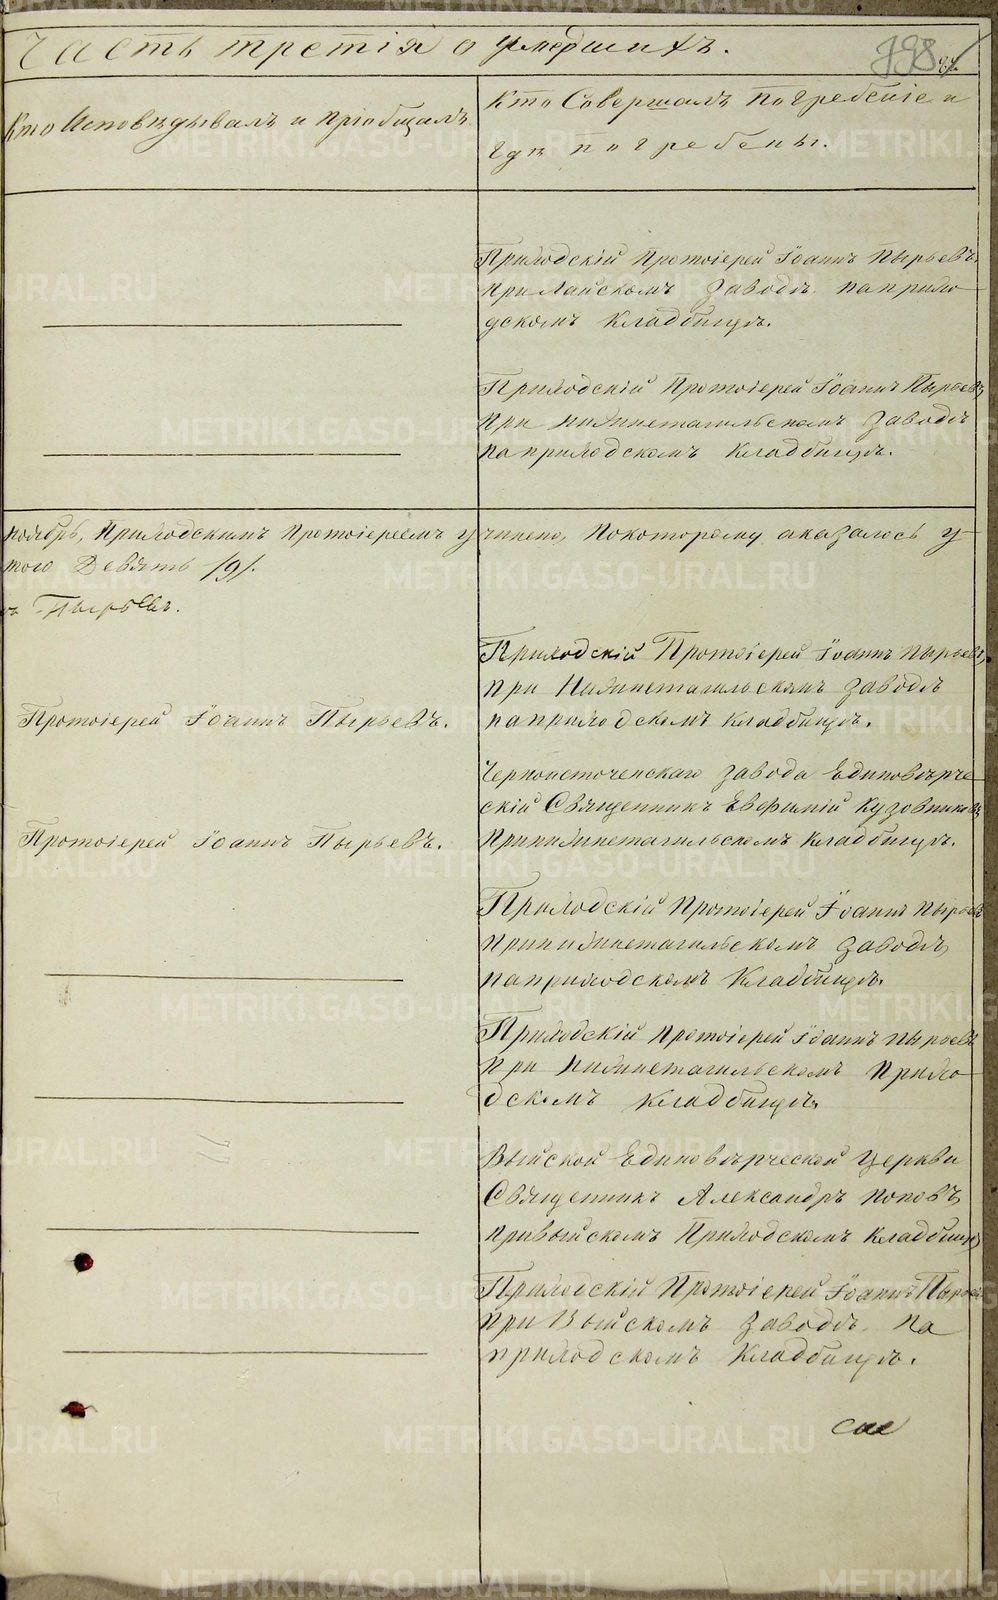 Часть третія о умершихъ.
798
Кто Исповѣдывалъ и пріобщалъ
Кто Совершалъ погребеніе и
гдѣ погребены.
Приходскій Протоіерей Іоаннъ Пырьевъ,
при Лайскомъ заводѣ, на прихо-
дскомъ Кладбищѣ.
Приходскій Протоіерей Іоаннъ Пырьевъ
при нижнетагильскомъ заводѣ
на приходскомъ Кладбищѣ.
ноябрь, Приходскимъ Протоіереемъ учинено, по которому оказалось у
того Девять /9/.
ъ Пырьевъ.
Приходскій Протоіерей Іоаннъ Пырьевъ,
при Нижнетагильскомъ заводѣ
на приходскомъ кладбищѣ.
Протоіерей Іоаннъ Пырьевъ.
Черноисточенскаго завода Единовѣрче-
скій Священникъ Евфимій Кузовниковъ
При нижнетагильскомъ Кладбищѣ.
Протоіерей Іоаннъ Пырьевъ.
Приходскій Протоіерей Іоаннъ Пырьевъ
при нижнетагильскомъ заводѣ,
на приходскомъ Кладбищѣ.
Приходскій Протоіерей Іоаннъ Пырьевъ
при Нижнетагильскомъ Прихо-
дскомъ кладбищѣ.
Выйской Единовѣрческой Церкви
Священникъ Александръ Поповъ,
при выйскомъ Приходскомъ Кладбищѣ
Приходскій Протоіерей Іоаннъ Пырьевъ
при Выйскомъ заводѣ, на
приходскомъ Кладбищѣ.